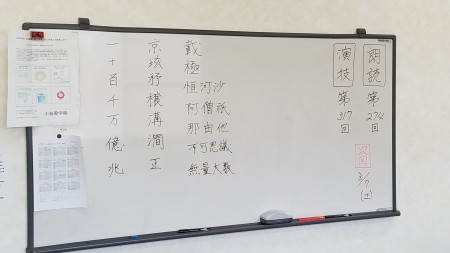 朗読 第274回
演技 第317回
3/7
(土)
一十百千万億兆
京垓秭穣溝澗正
載
極
恒河沙
阿僧祇
那由他
不可思議
無量大数